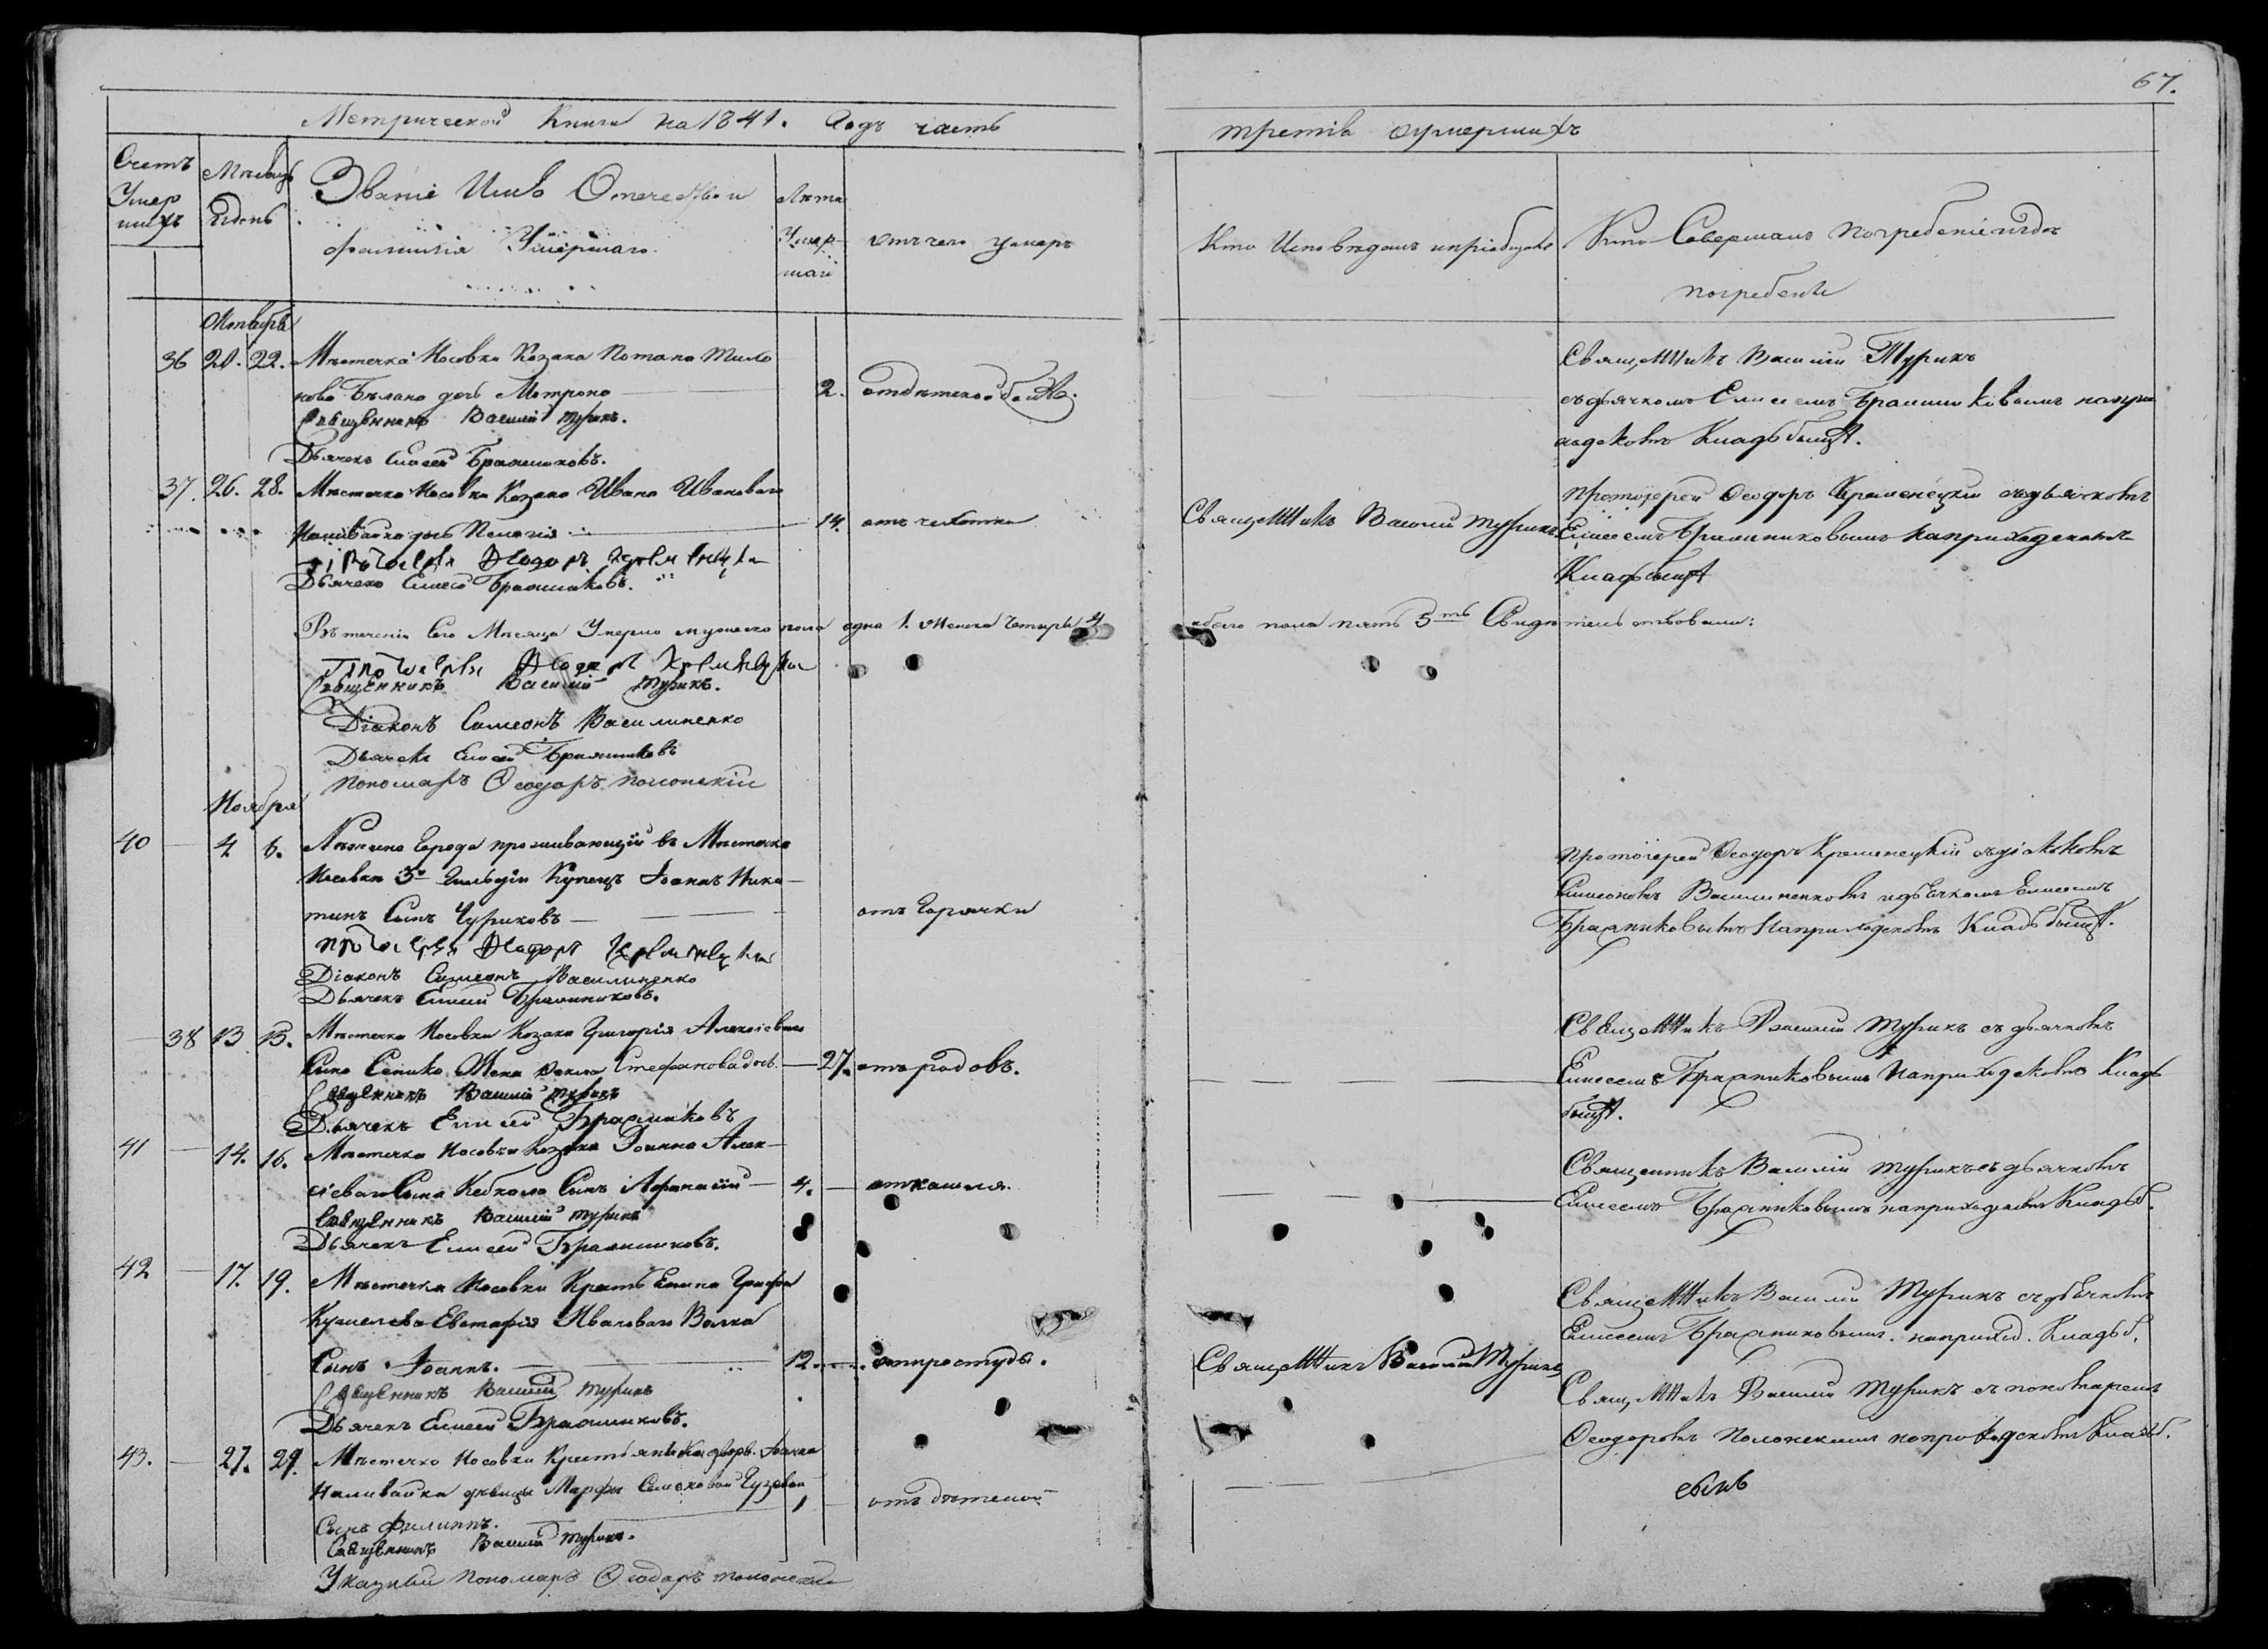 67.
Метрической Книги на 1841. Годъ часть
третія оумершихъ
Счетъ Умершихъ
Мѣсяцъ и день
Званіе Имя Отечество и
фамилія Умершаго
Лѣта Умершаго
отъ чего умеръ
Кто Исповѣдалъ и пріобщалъ
Кто Совершалъ погребеніе и гдѣ
погребены
Октября
36 20. 22. Мѣстечка Носовки Козака Потапа
дочь Матрона
2.
Священникъ Василій Турикъ.
Дьячекъ Елисей Бражниковъ.
Священникъ Василій Турикъ
съ дьячкомъ Елисеемъ Бражниковымъ на при
ходскомъ Кладбищѣ.
37. 26. 28. Мѣстечка Носовки Козака Ивана Иванового
Наливайка дочь Пелагія
14. отъ чахотки
Протоіерей Ѳеодоръ Кременецкій
Дьячекъ Елисей Бражниковъ.
Священникъ Василій Турикъ
протоіерей Ѳеодоръ Кременецкій съ дьячкомъ
Елисеемъ Бражниковымъ на приходскомъ
Кладбищѣ
Въ теченіи Сего Мѣсяца Умерло мужеска пола одна 1. Женска Четыре 4
обоего пола пять 5ть Свидѣтельствовали:
Протоіерей Ѳеодоръ Кременецкій
Священникъ Василій Турикъ.
Діаконъ Симеонъ Василиненко
Дьячекъ Елисей Бражниковъ
Пономарь Ѳеодоръ Полонскій
Ноября
40 4 6. Нѣжина Города проживающій въ Мѣстечкѣ
Носовки 3й Гильдіи Купецъ Іоаннъ Ники
тинъ Сынъ Чуриковъ
отъ Горячки
Протоіерей Ѳеодоръ Кременецкій
Діаконъ Симеонъ Василиненко
Дьячекъ Елисей Бражниковъ.
протоіерей Ѳеодоръ Кременецкій съ діакономъ
Симеономъ Василиненкомъ и дьячкомъ Елисеемъ
Бражниковымъ на приходскомъ Кладбищѣ.
38 13 15. Мѣстечка Носовки Козака Григорія Алексіева
Сына Жена Стефанова дочь
27. отъ родовъ.
Священникъ Василій Турикъ
Дьячекъ Елисей Бражниковъ
Священникъ Василій Турикъ съ дьячкомъ
Елисеемъ Бражниковымъ на приходскомъ Клад
бищѣ.
41 14. 16. Мѣстечка Носовки Козака Іоанна Алек
сіеваго Сына Сынъ Афанасій
4. от кашля.
Священникъ Василій Турикъ
Дьячекъ Елисей Бражниковъ.
Священникъ Василій Турикъ съ дьячкомъ
Елисеемъ Бражниковымъ на приходскомъ Кладб.
42 17. 19. Мѣстечка Носовки Графа
Кушелева Евстафія Иванового Волка
Сынъ Іоаннъ.
12. от простуды.
Священникъ Василій Турикъ
Дьячекъ Елисей Бражниковъ.
Священникъ Василій Турикъ
Священникъ Василій Турикъ съ дьячкомъ
Елисеемъ Бражниковымъ. на приход. Кладб.
43. 27. 29. Мѣстечка Носовки Іоанна
Наливайка дѣвицы Марфы
Сынъ Филиппъ.
1 отъ дѣтской
Священникъ Василій Турикъ.
Указный Пономарь Ѳеодоръ Полонскій
Священникъ Василій Турикъ съ пономаремъ
Ѳеодоромъ Полонскимъ на приходскомъ Кладб.